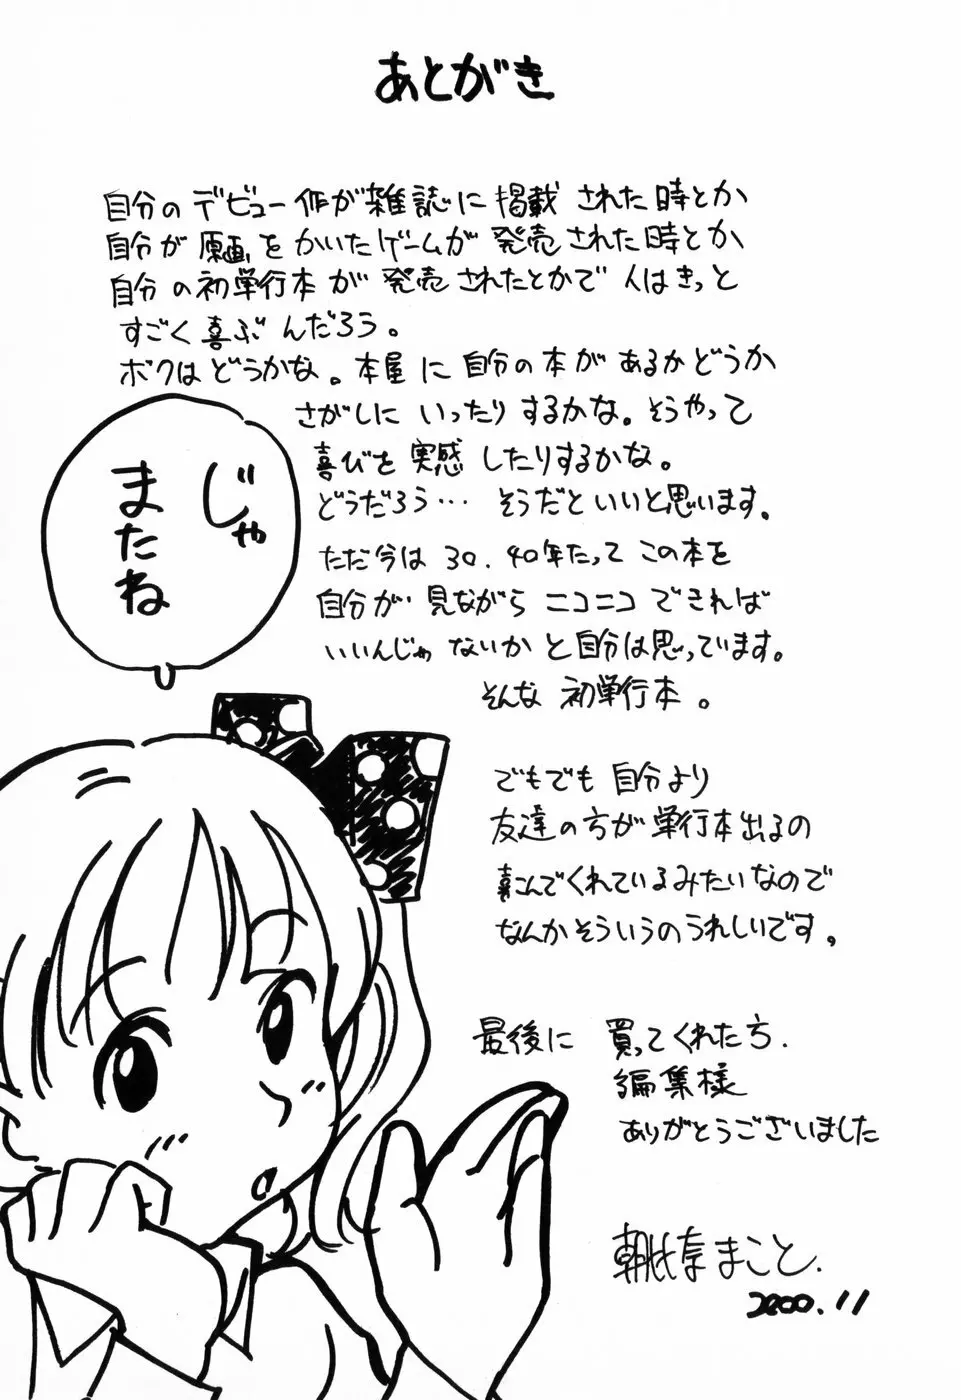 あとがき
自分のデビュー作が雑誌に掲載された時とか
自分が原画をかいたゲームが発売された時とか
自分の初単行本が発売されたとかで人はきっと
すごく喜ぶんだろう。
ボクはどうかな。本屋に自分の本があるかどうか
さがしにいったりするかな。そうやって
喜びを実感したりするかな。
どうだろう… そうだといいと思います。
ただ今は30.40年たってこの本を
自分が見ながらニコニコできれば
いいんじゃないかと自分は思っています。
そんな初単行本。
じゃ
またね
でもでも自分より
友達の方が単行本出るの
喜こんでくれているみたいなので
なんかそういうのうれしいです。
最後に 買ってくれた方.
編集様
ありがとうございました
朝比奈まこと.
2000.11